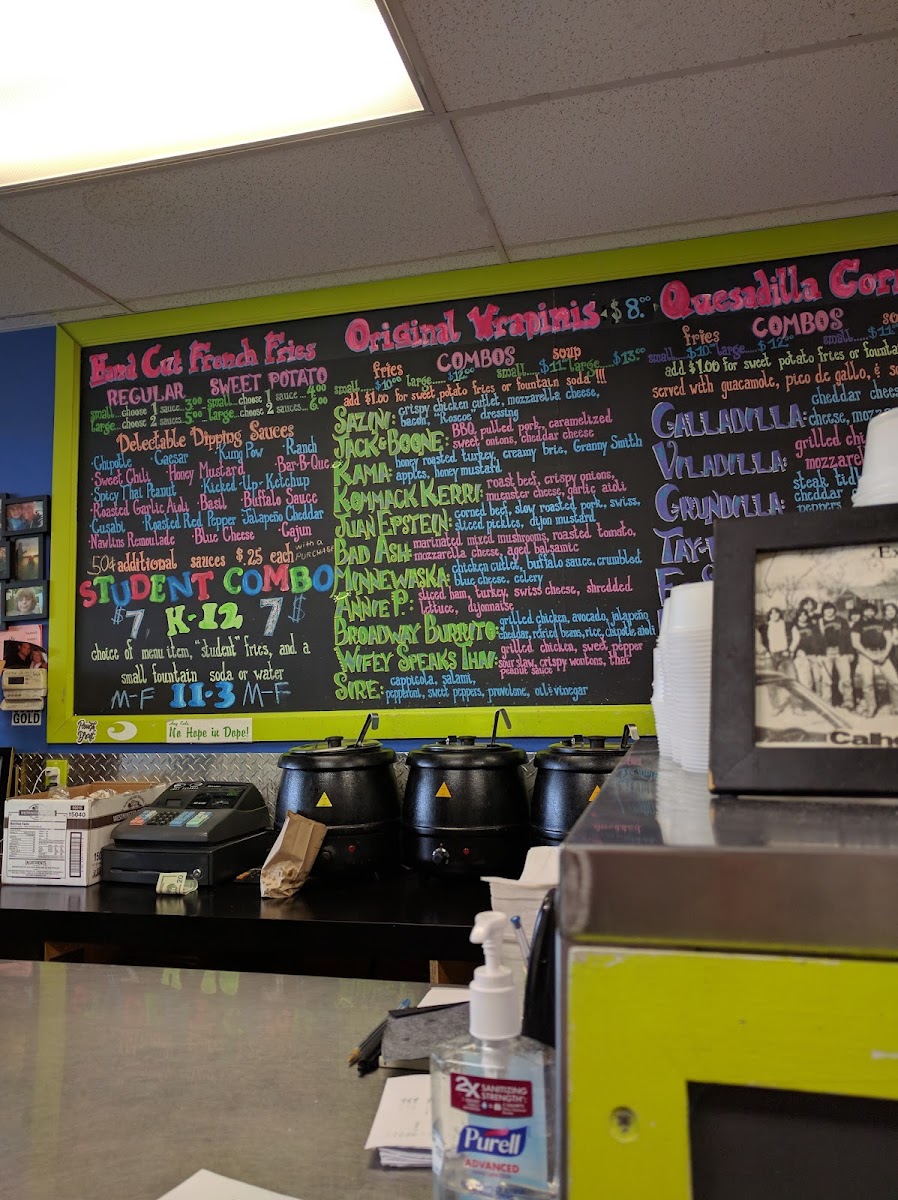 Hand Cut French Fries
REGULAR SWEET POTATO
small...choose 1 sauce.3.00 small...choose 1 sauce...4.00
Large...choose 2 sauces..5.00 Large...choose 2 sauces...6.00
Delectable Dipping Sauces
·Chipotle ·Caesar ·Kung Pow ·Ranch
·Sweet Chili ·Honey Mustard ·Bar-B-Que
·Spicy Thai Peanut ·Kicked-Up-Ketchup
·Roasted Garlic Aioli ·Basil ·Buffalo Sauce
·Cusabi ·Roasted Red Pepper ·Jalapeño Cheddar
·Nawlins Remoulade ·Blue Cheese ·Cajun
50¢ additional sauces $.25 each with a PURCHASE
STUDENT COMBO
$7 K-12 7$
choice of menu item, "student" fries, and a
small fountain soda or water
M-F 11-3 M-F
Original Wrapinis $8.00
COMBOS
fries soup
small....$10.00 large....$12.00 small....$11.00 large....$13.00
add $1.00 for sweet potato fries or fountain soda !!!
SAZINI: crispy chicken cutlet, mozzarella cheese,
bacon, "Roscoe" dressing
JACK&BOONE: BBQ pulled pork, caramelized
sweet onions, cheddar cheese
KAMA: honey roasted turkey, creamy brie, Granny Smith
apples, honey mustard
KOMMACK KERRI: roast beef, crispy onions,
muenster cheese, garlic aioli
JUAN EPSTEIN: corned beef, slow roasted pork, swiss,
sliced pickles, dijon mustard
BAD ASH: marinated mixed mushrooms, roasted tomato,
mozzarella cheese, aged balsamic
MINNEWASKA: chicken cutlet, buffalo sauce, crumbled
blue cheese, celery
ANNIE P.: sliced ham, turkey, swiss cheese, shredded
lettuce, dijonnaise
BROADWAY BURRITO: grilled chicken, avocado, jalapeño
cheddar, refried beans, rice, chipotle aioli
WIFEY SPEAKS THAI: grilled chicken, sweet pepper
sour slaw, crispy wontons, thai
peanut sauce
SIRE: cappicola, salami,
pepperoni, sweet peppers, provolone, oil & vinegar
Quesadilla Cor
COMBOS
fries so
small....$10.00 large....$12.00 small....$11
add $1.00 for sweet potato fries or fountai
served with guacamole, pico de gallo, &
GALLADILLA: cheddar chees
cheese, mozz
VILADILLA: grilled chi
mozzarel
GRUNDILLA: steak,
cheddar
peppers
TAY-
GOLD
No Hope in Dope!
15040
Calh
2X
SANITIZING
STRENGTH
Purell
ADVANCED